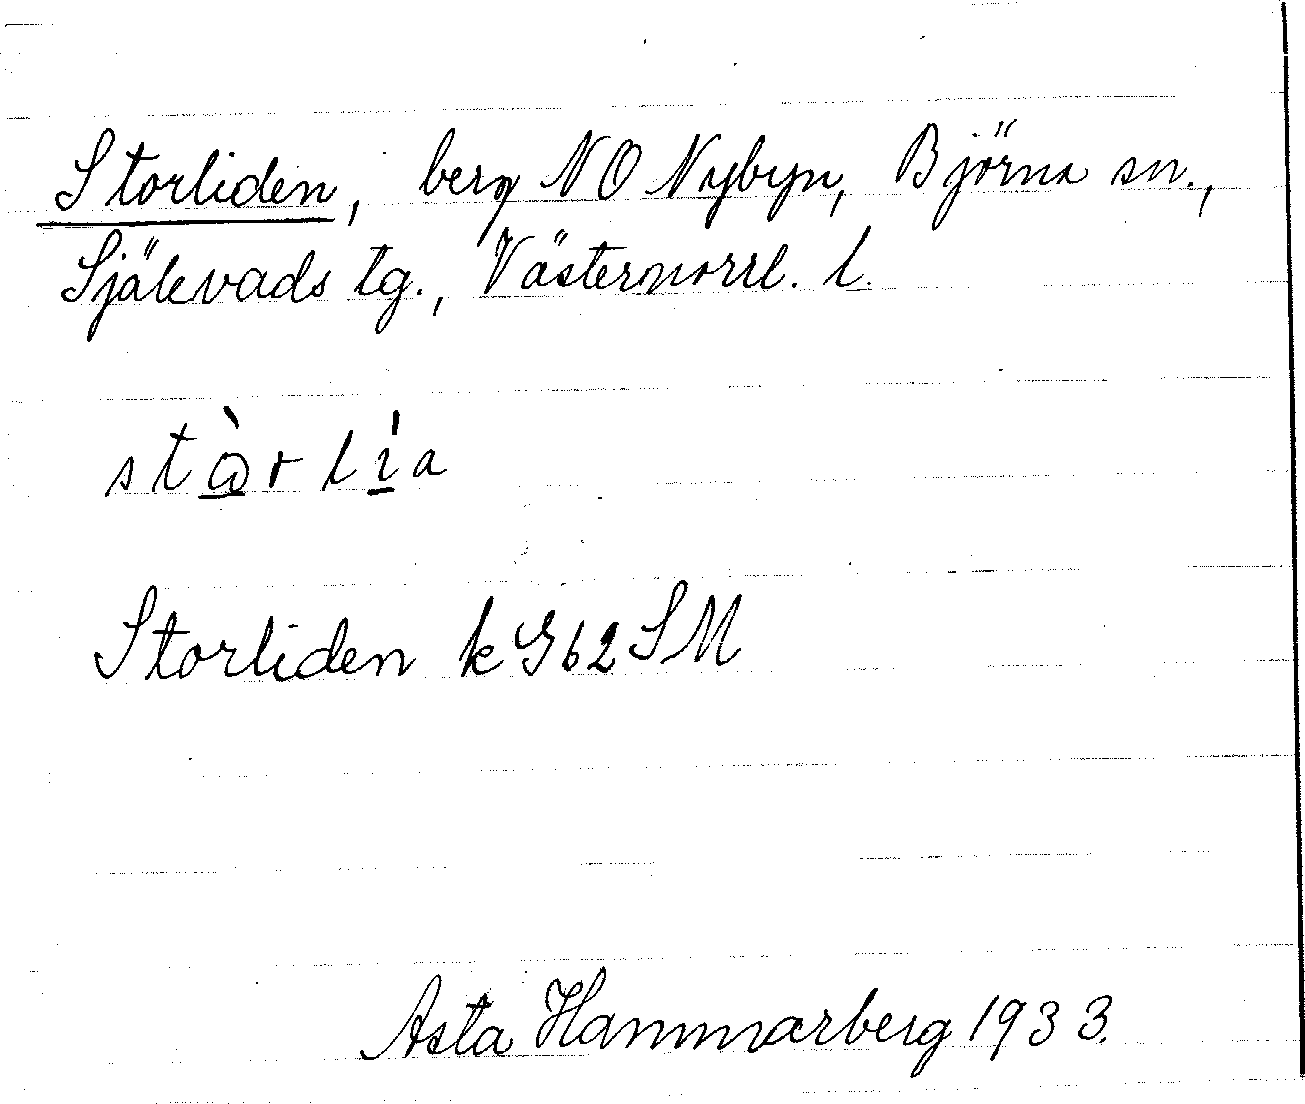 Storliden, berg NO Nybyn, Björna sn.,
Själevads tg., Västernorrl. l.
stὼr lía
Storliden k G62 SM
Asta Hammarberg 1933.